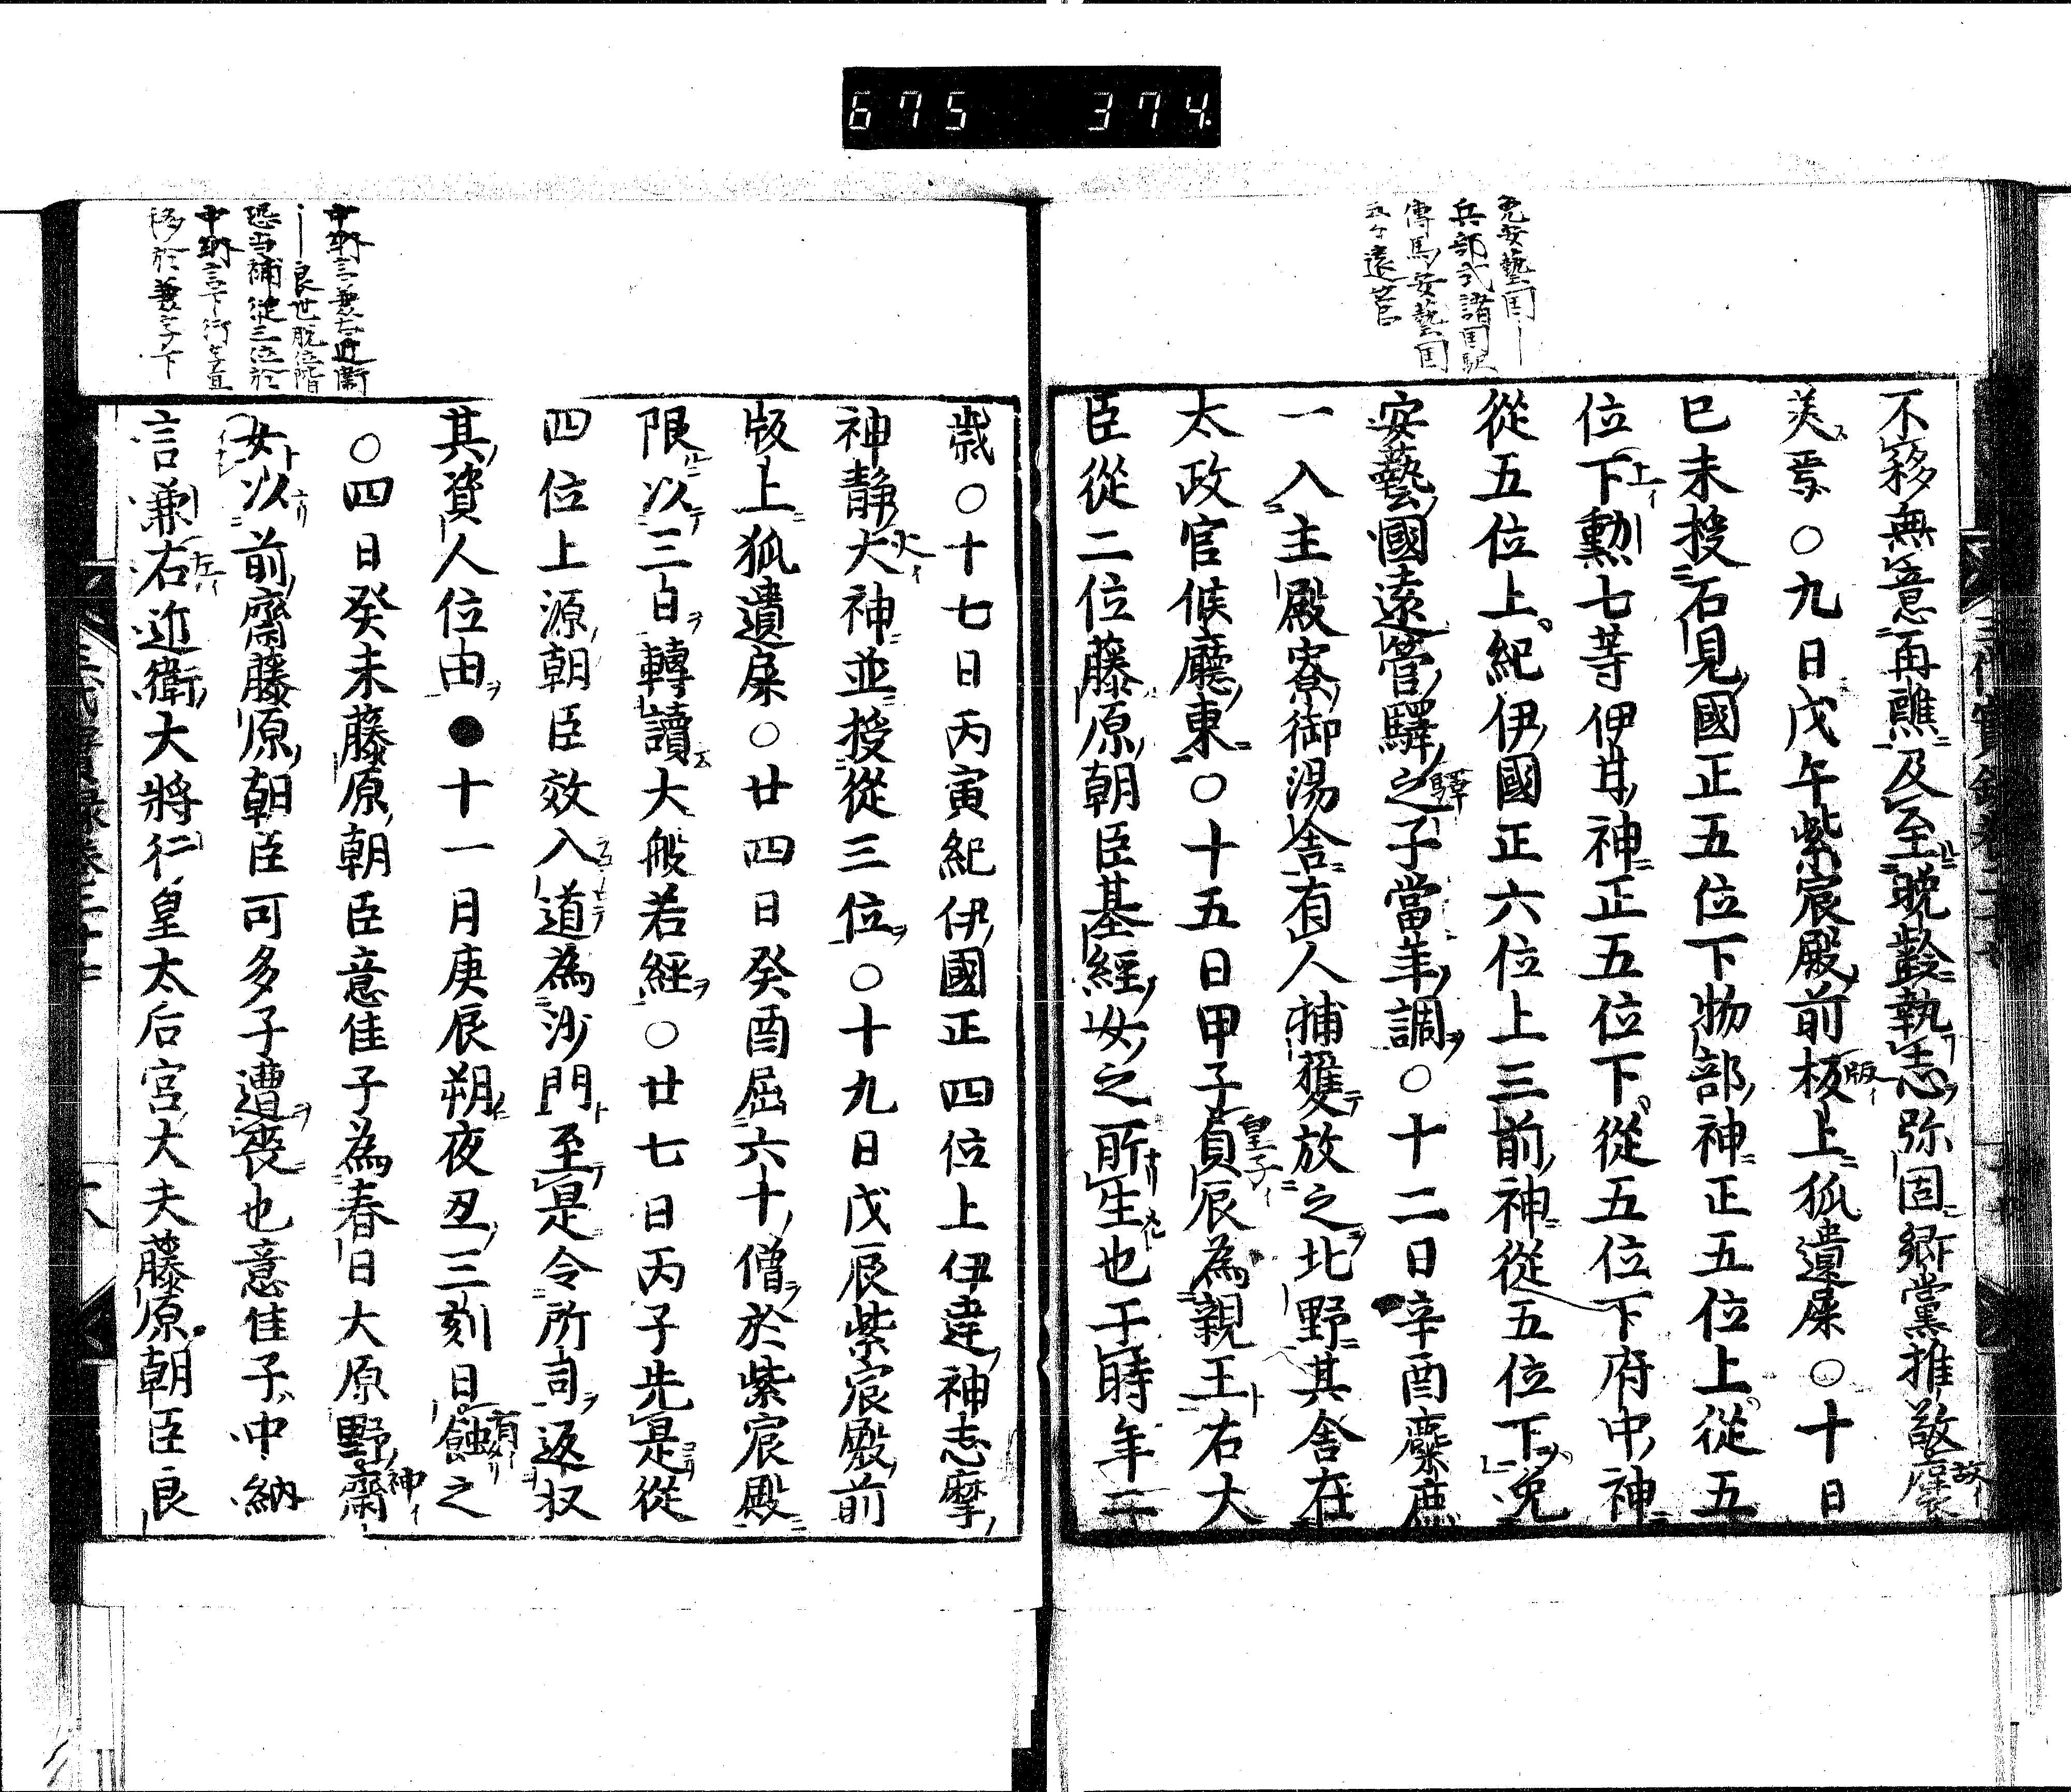 675 374.
免安藝国｜
兵部式諸国駅
傳馬安藝国
不移無意再醮及至晩齡執志弥固郷黨推敬
焉○九日戊午紫宸殿前板上狐遺屎○十日
已未授石見國正五位下物部神正五位上從五
位下勲七等伊甘神正五位下從五位下府中神
從五位上紀伊國正六位上三前神從五位下免
安藝國遠管驛之子當年調○十二日辛酉麋鹿
一入主殿寮御湯舎有人捕獲放之北野其舎在
太政官候廳東○十五日甲子貞辰為親王右大
臣從二位藤原朝臣基經女之所生也于時年二
歳○十七日丙寅紀伊國正四位上伊達神志摩
神静大神並授從三位○十九日戊辰紫宸殿前
版上狐遺屎○廿四日癸酉屈六十僧於紫宸殿
限以三日轉讀大般若經○廿七日丙子先是從
四位上源朝臣效入道為沙門至是令所司返収
其資人位由●十一月庚辰朔夜丑三刻日蝕之
○四日癸未藤原朝臣意佳子為春日大原野齋
女以前齋藤原朝臣可多子遭喪也意佳子中納
言兼右近衛大將行皇太后宮大夫藤原朝臣良
中納言兼右近衛
｜良世脱位階
恐当補從三位於
中納言下行字宜
移於兼字下